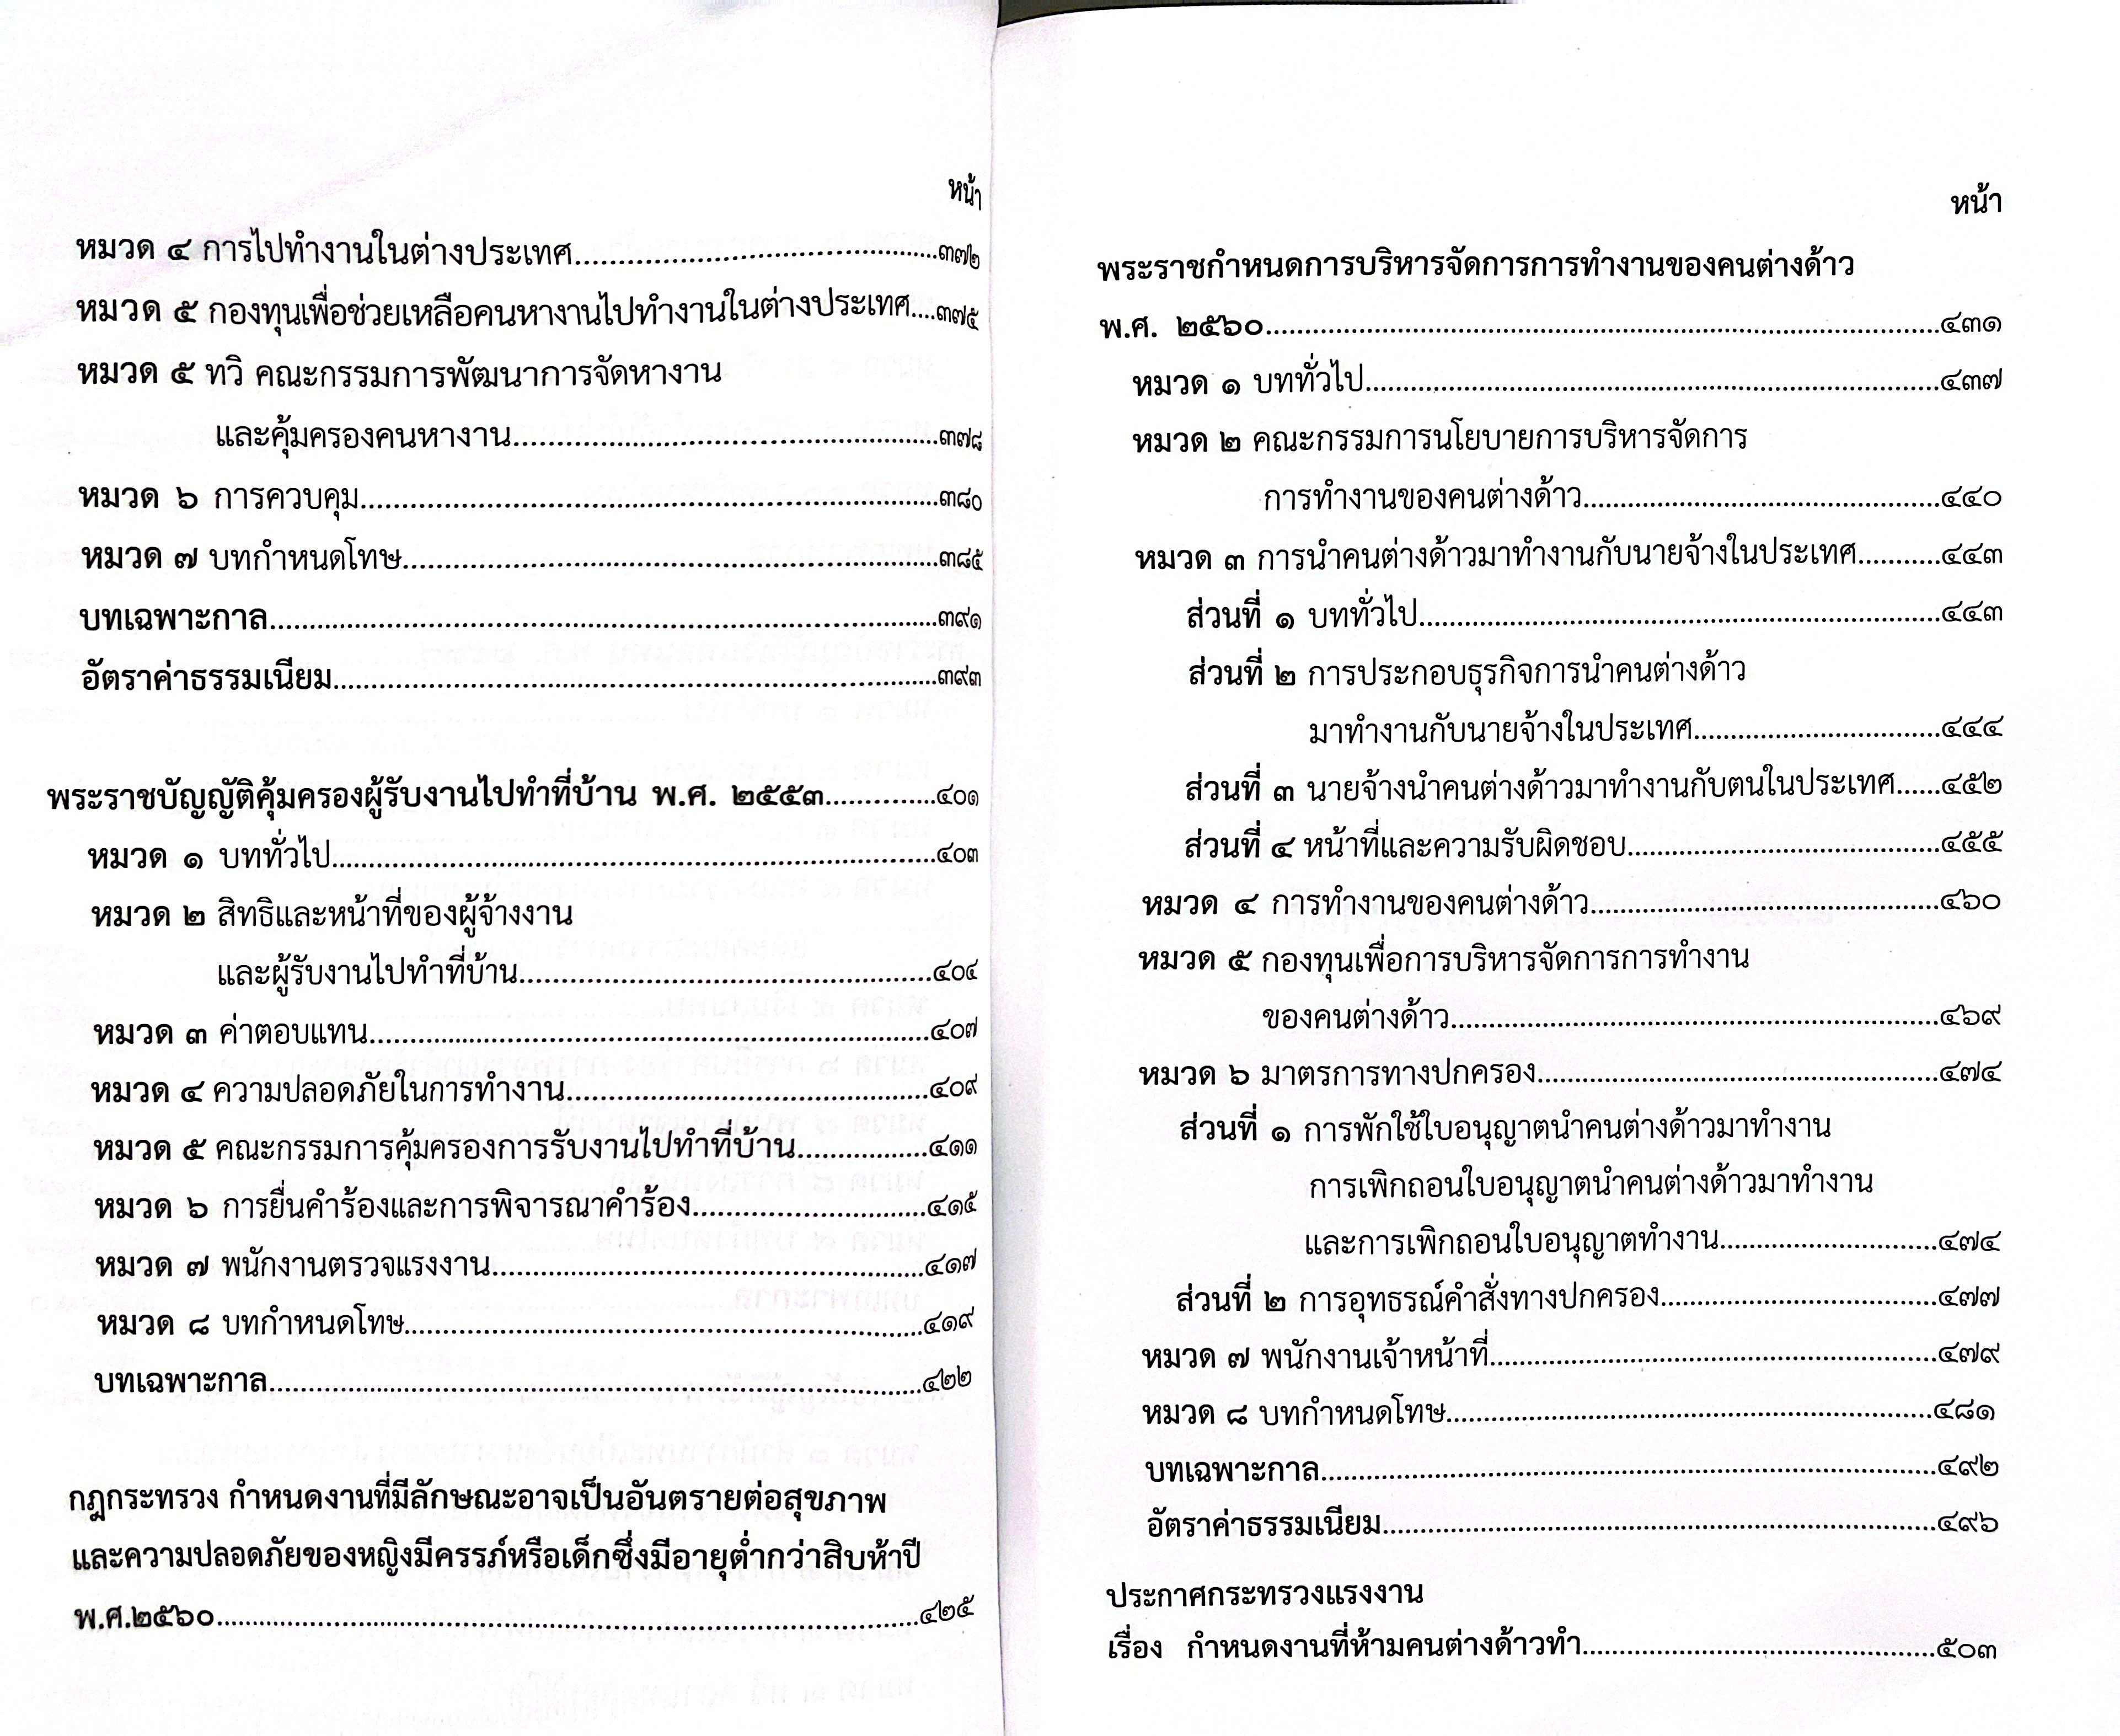 หน้า
หมวด ๔ การไปทำงานในต่างประเทศ....................................๓๗๒
หมวด ๕ กองทุนเพื่อช่วยเหลือคนหางานไปทำงานในต่างประเทศ....๓๗๕
หมวด ๕ ทวิ คณะกรรมการพัฒนาการจัดหางาน
และคุ้มครองคนหางาน....................................๓๗๘
หมวด ๖ การควบคุม....................................๓๘๐
หมวด ๗ บทกำหนดโทษ....................................๓๘๕
บทเฉพาะกาล....................................๓๙๑
อัตราค่าธรรมเนียม....................................๓๙๓
พระราชบัญญัติคุ้มครองผู้รับงานไปทำที่บ้าน พ.ศ. ๒๕๕๓..............๔๐๑
หมวด ๑ บททั่วไป....................................๔๐๓
หมวด ๒ สิทธิและหน้าที่ของผู้จ้างงาน
และผู้รับงานไปทำที่บ้าน....................................๔๐๔
หมวด ๓ ค่าตอบแทน....................................๔๐๗
หมวด ๔ ความปลอดภัยในการทำงาน....................................๔๐๙
หมวด ๕ คณะกรรมการคุ้มครองการรับงานไปทำที่บ้าน................๔๑๑
หมวด ๖ การยื่นคำร้องและการพิจารณาคำร้อง............................๔๑๕
หมวด ๗ พนักงานตรวจแรงงาน....................................๔๑๗
หมวด ๘ บทกำหนดโทษ....................................๔๑๙
บทเฉพาะกาล....................................๔๒๒
กฎกระทรวง กำหนดงานที่มีลักษณะอาจเป็นอันตรายต่อสุขภาพ
และความปลอดภัยของหญิงมีครรภ์หรือเด็กซึ่งมีอายุต่ำกว่าสิบห้าปี
พ.ศ.๒๕๖๐....................................๔๒๕
หน้า
พระราชกำหนดการบริหารจัดการการทำงานของคนต่างด้าว
พ.ศ. ๒๕๖๐....................................๔๓๑
หมวด ๑ บททั่วไป....................................๔๓๗
หมวด ๒ คณะกรรมการนโยบายการบริหารจัดการ
การทำงานของคนต่างด้าว....................................๔๔๐
หมวด ๓ การนำคนต่างด้าวมาทำงานกับนายจ้างในประเทศ...........๔๔๓
ส่วนที่ ๑ บททั่วไป....................................๔๔๓
ส่วนที่ ๒ การประกอบธุรกิจการนำคนต่างด้าว
มาทำงานกับนายจ้างในประเทศ..............................๔๔๔
ส่วนที่ ๓ นายจ้างนำคนต่างด้าวมาทำงานกับตนในประเทศ......๔๕๒
ส่วนที่ ๔ หน้าที่และความรับผิดชอบ....................................๔๕๕
หมวด ๔ การทำงานของคนต่างด้าว....................................๔๖๐
หมวด ๕ กองทุนเพื่อการบริหารจัดการการทำงาน
ของคนต่างด้าว....................................๔๖๙
หมวด ๖ มาตรการทางปกครอง....................................๔๗๔
ส่วนที่ ๑ การพักใช้ใบอนุญาตนำคนต่างด้าวมาทำงาน
การเพิกถอนใบอนุญาตนำคนต่างด้าวมาทำงาน
และการเพิกถอนใบอนุญาตทำงาน..........................๔๗๔
ส่วนที่ ๒ การอุทธรณ์คำสั่งทางปกครอง................................๔๗๗
หมวด ๗ พนักงานเจ้าหน้าที่....................................๔๗๙
หมวด ๘ บทกำหนดโทษ....................................๔๘๑
บทเฉพาะกาล....................................๔๙๒
อัตราค่าธรรมเนียม....................................๔๙๖
ประกาศกระทรวงแรงงาน
เรื่อง กำหนดงานที่ห้ามคนต่างด้าวทำ....................................๕๐๓